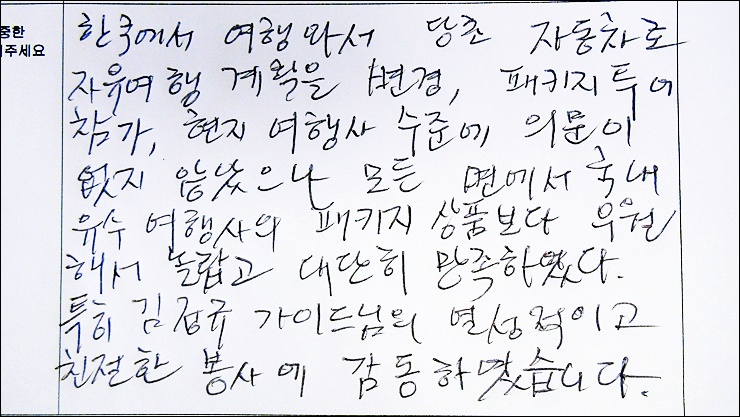 중한
여주세요
한국에서 여행와서 당초 자동차로
자유여행 계획을 변경, 패키지투어
참가, 현지 여행사 수준에 의문이
없지 않았으나 모든 면에서 국내
유수 여행사의 패키지 상품보다 우월
해서 놀랍고 대단히 만족하였다.
특히 김정규 가이드님의 열성적이고
친절한 봉사에 감동하였습니다.